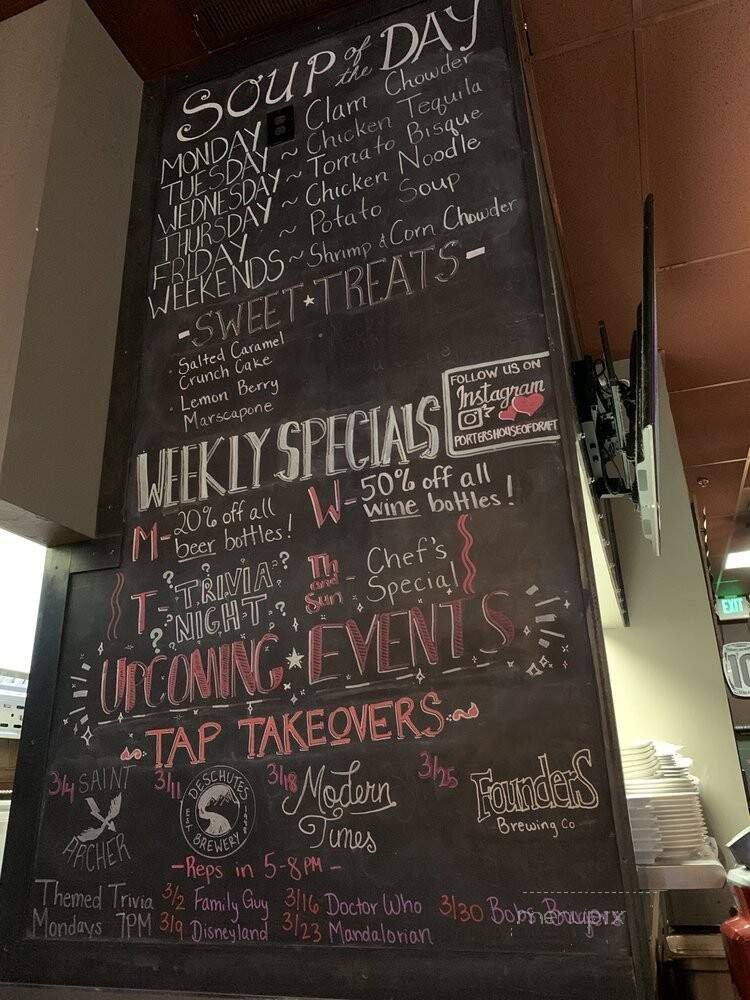 SOUP of the DAY
MONDAY ~ Clam Chowder
TUESDAY ~ Chicken Tequila
WEDNESDAY ~ Tomato Bisque
THURSDAY ~ Chicken Noodle
FRIDAY ~ Potato Soup
WEEKENDS ~ Shrimp & Corn Chowder
- SWEET ★ TREATS -
· Salted Caramel
Crunch Cake
· Lemon Berry
Marscapone
FOLLOW US ON
Instagram
PORTERSHOUSEOFDRAFT
WEEKLY SPECIALS
M - 20% off all
beer bottles!
W - 50% off all
wine bottles!
T - ? TRIVIA ?
? NIGHT ?
Th and Sun - Chef's
Special
UPCOMING ★ EVENTS
~ TAP TAKEOVERS ~
3/4 SAINT
ARCHER
3/11 DESCHUTES
BREWERY
EST 1988
3/18 Modern
Times
3/25 Founders
Brewing Co
- Reps in 5-8PM -
Themed Trivia
Mondays 7PM
3/2 Family Guy
3/9 Disneyland
3/16 Doctor Who
3/23 Mandalorian
3/30 Bobs
EXIT